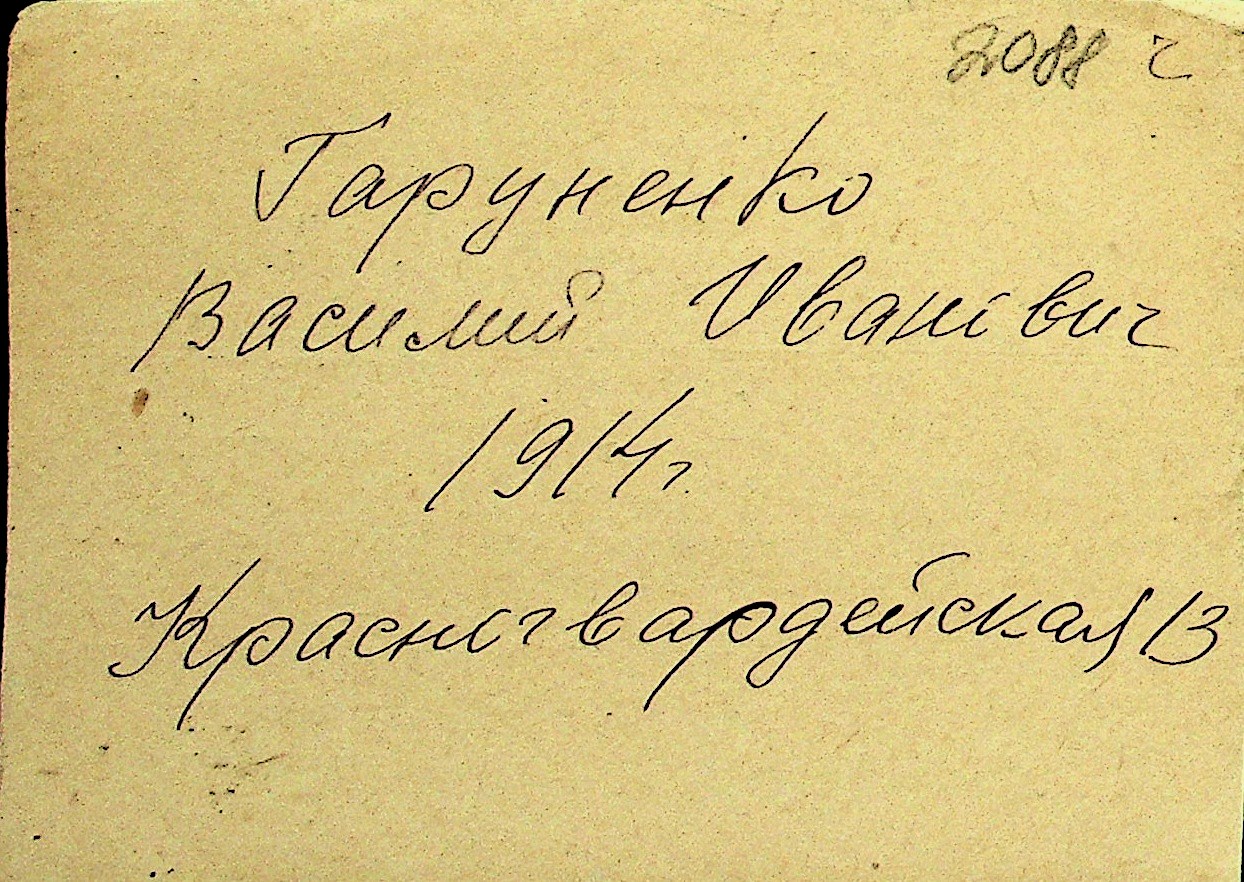 2088 г
Гаруненко
Василий Иванович
1914г.
Красногвардейская 13